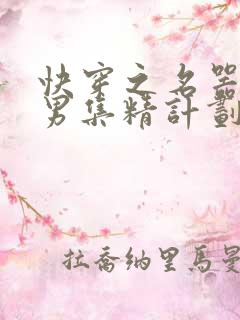 快穿之名器
男集精計劃
拉喬納里馬曼